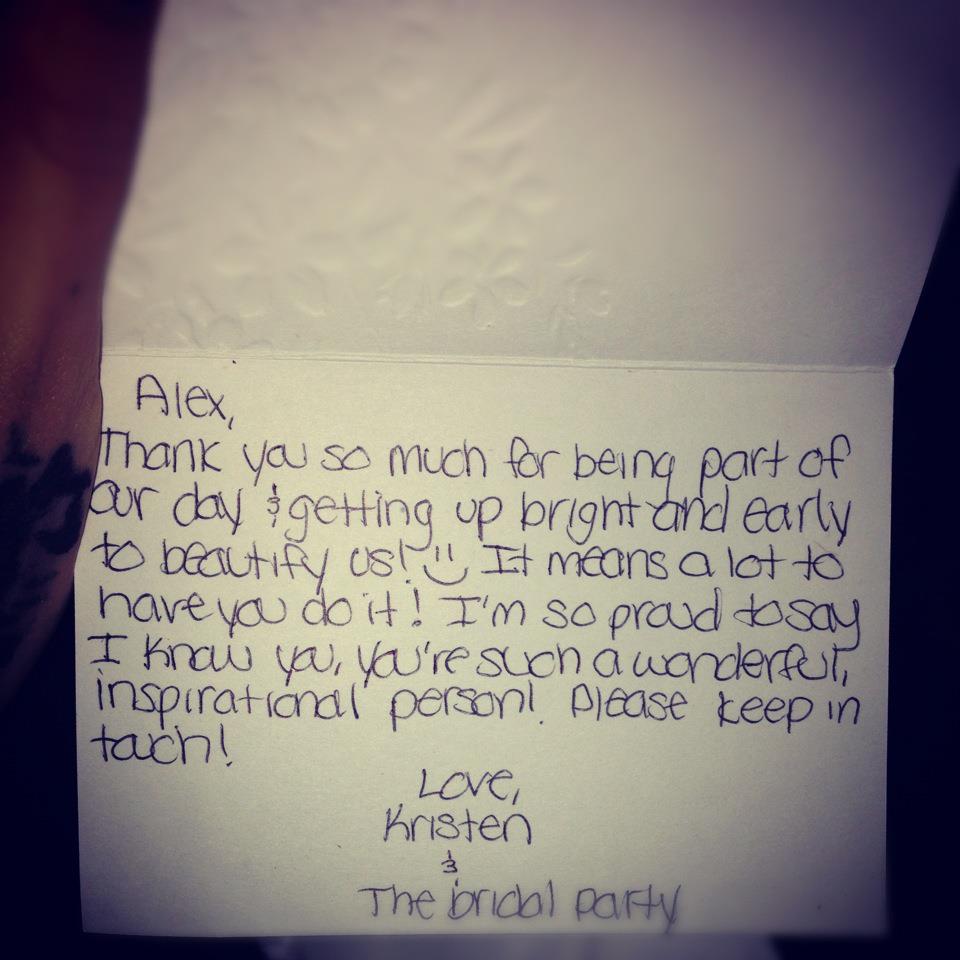 Alex,
Thank you so much for being part of
our day & getting up bright and early
to beautify us! :) It means a lot to
have you do it! I'm so proud to say
I know you, you're such a wonderful,
inspirational person! Please keep in
touch!
Love,
Kristen
&
The bridal party